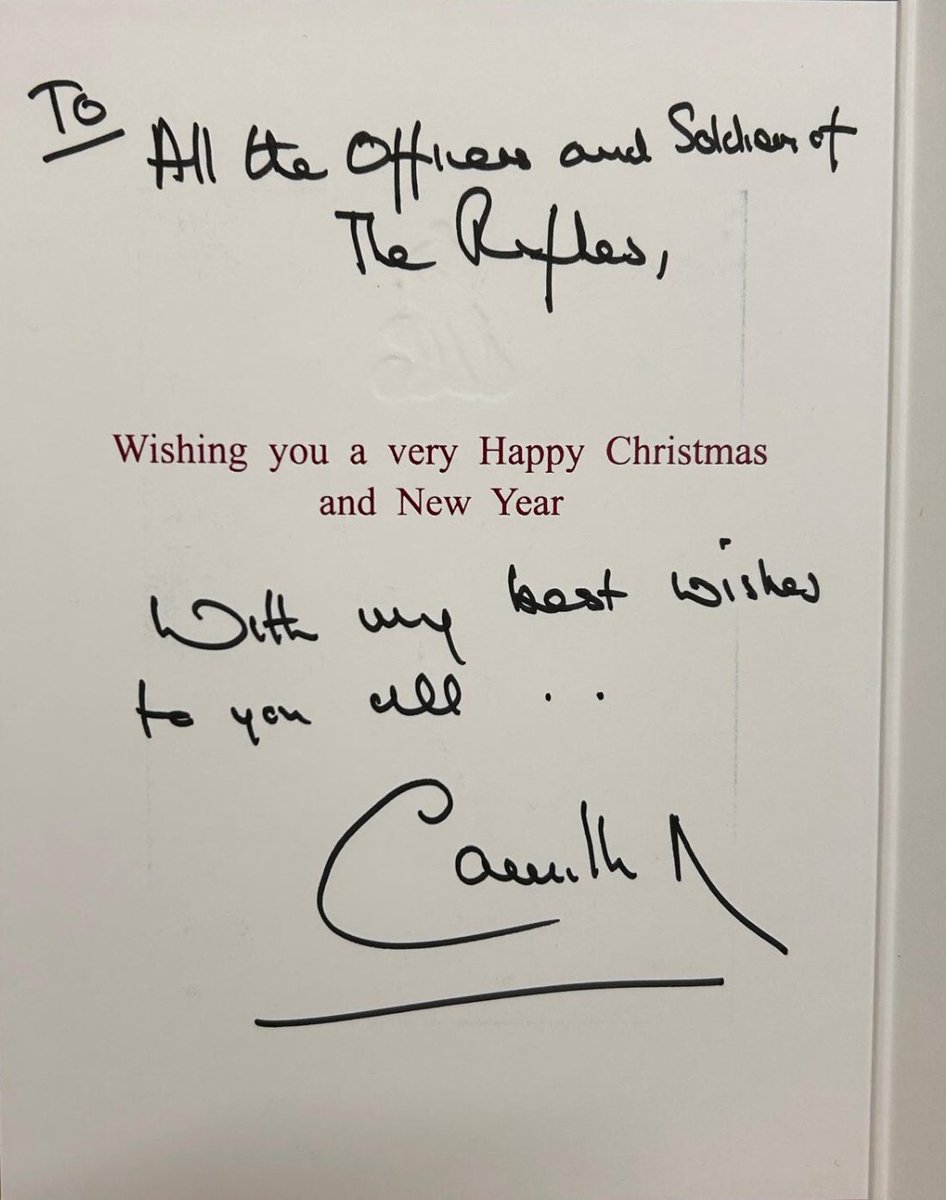 To
All the Officers and Soldiers of
The Rifles,
Wishing you a very Happy Christmas
and New Year
With my best wishes
to you all ...
Camilla R